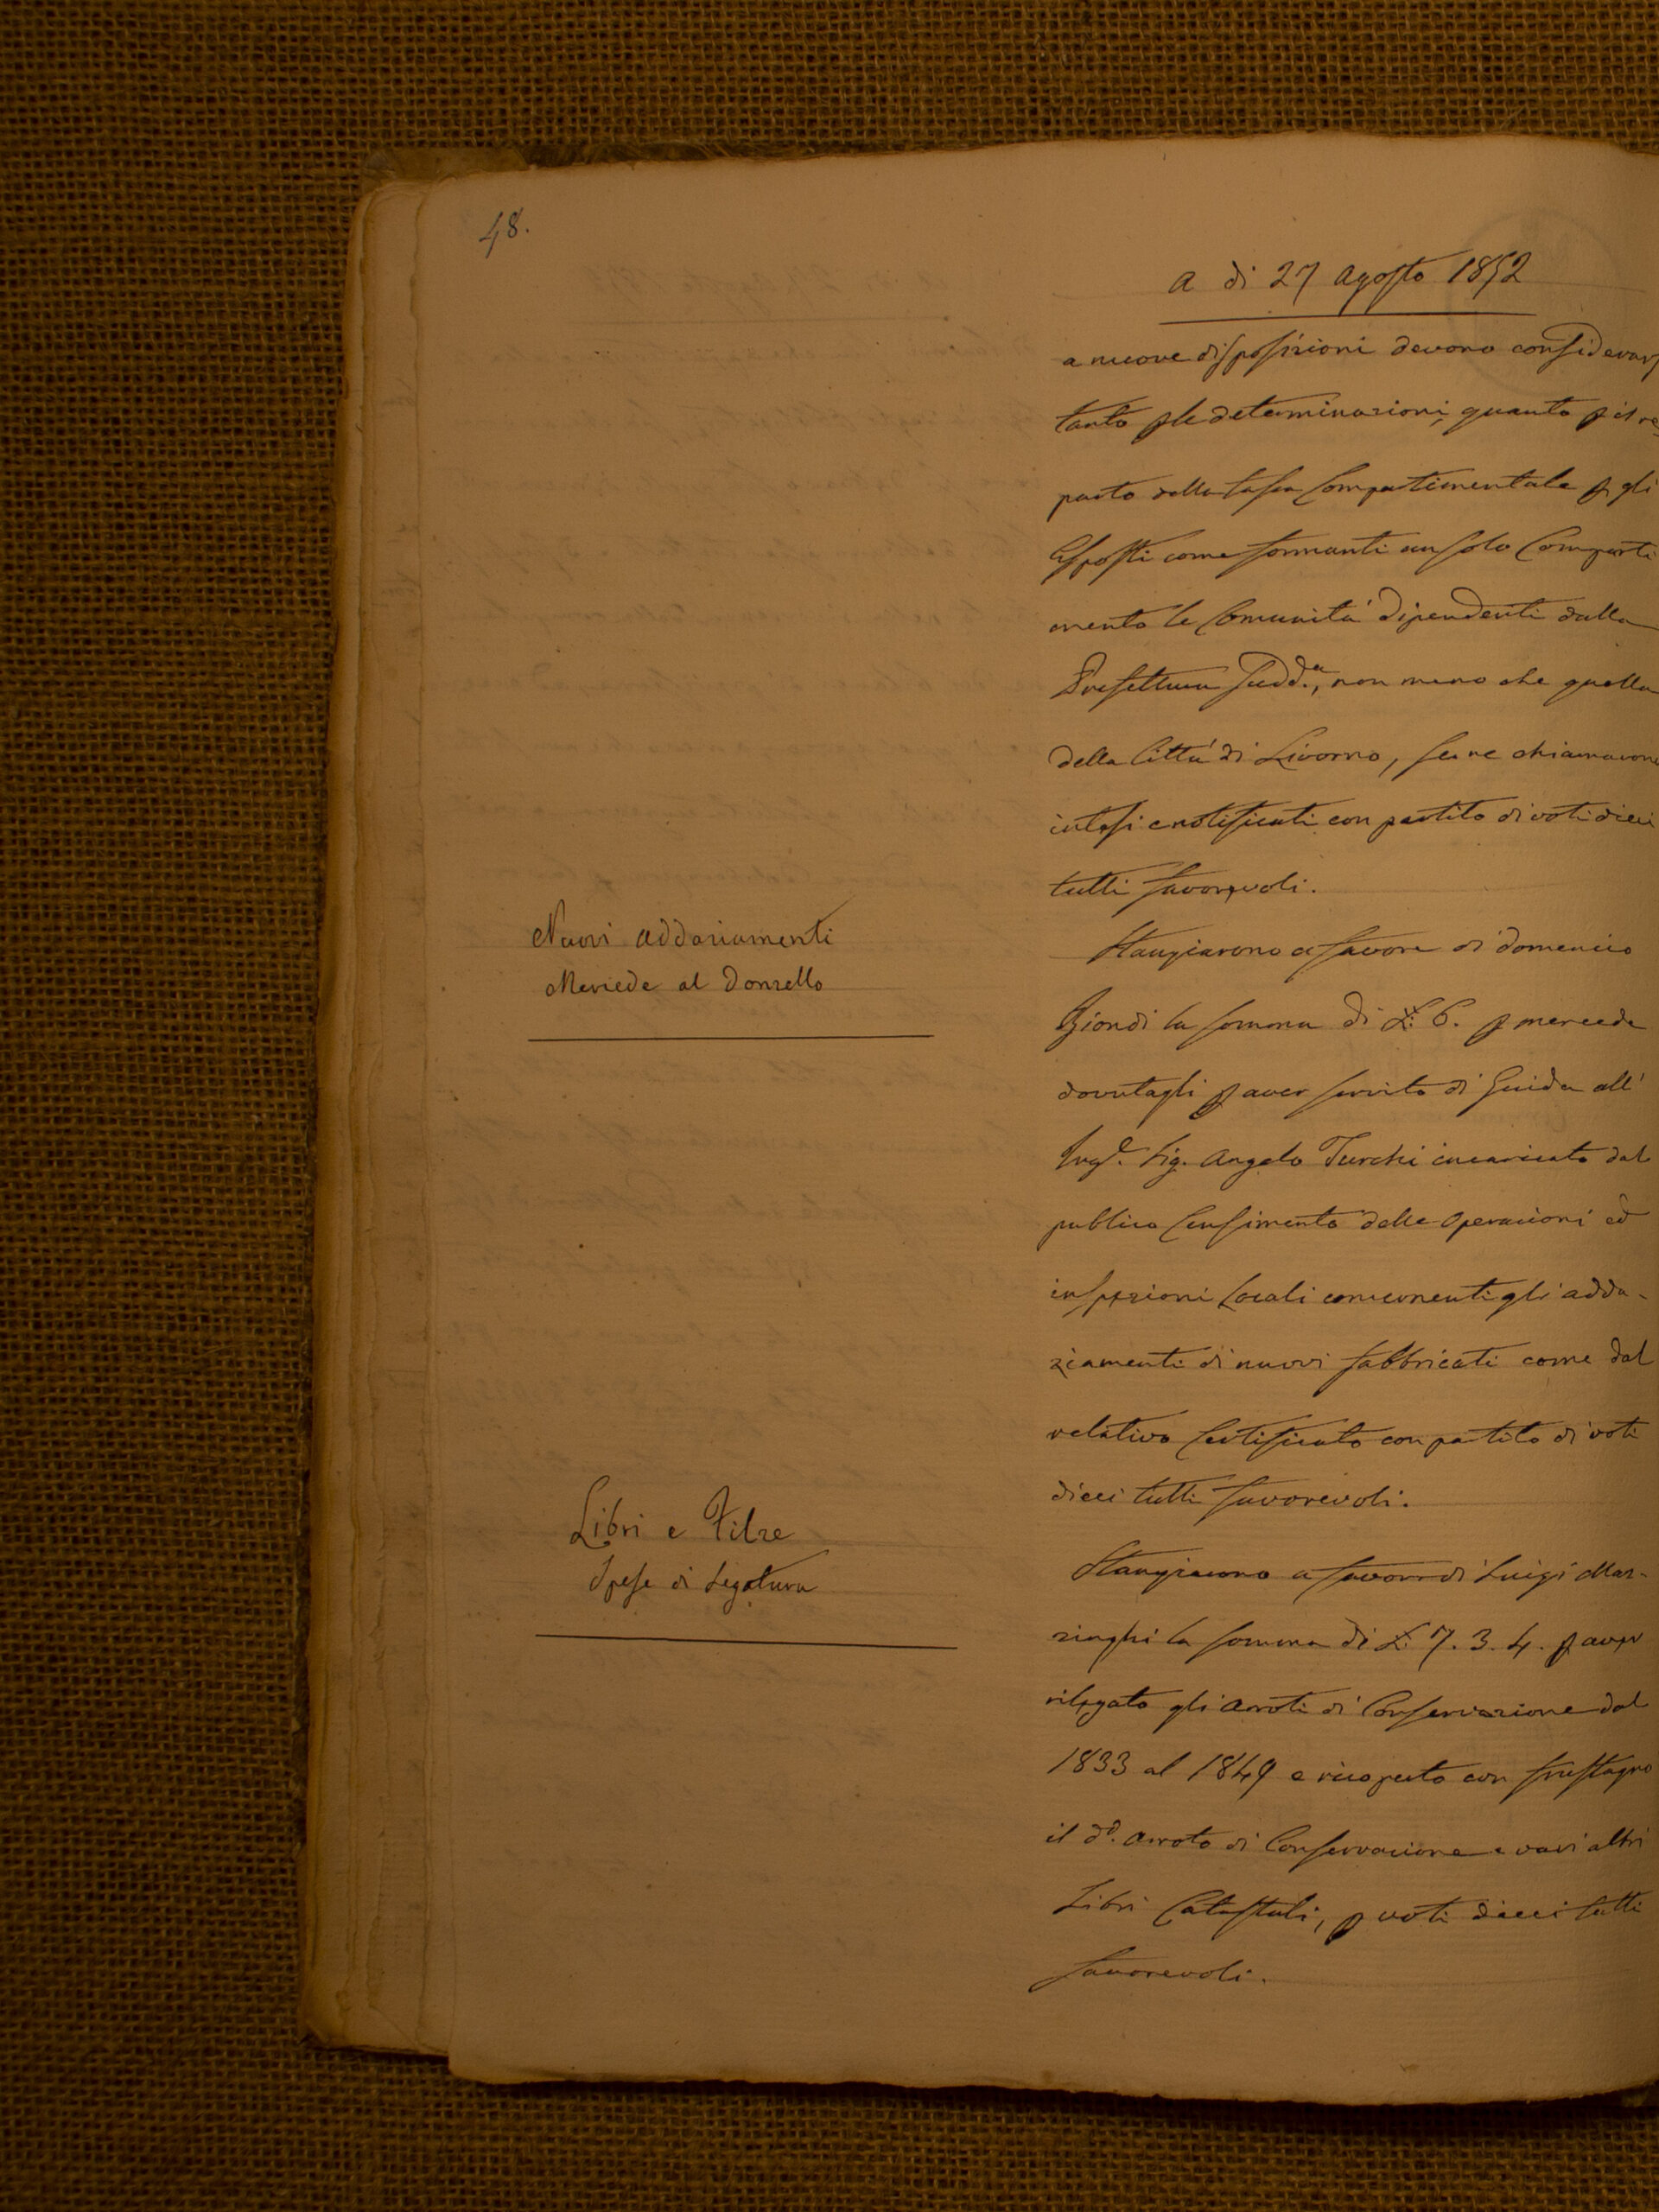 48.
A di 27 Agosto 1852
a nuove disposizioni devono considerars
tanto p le determinazioni, quanto p il re
parto della tassa Compartimentale p gli
Esposti come formanti un solo Comparti
mento le Comunità dipendenti dalla
Prefettura sudd.a, non meno che quella
della Città di Livorno, se ne chiamarono
intesi e notificati con partito di voti dieci
tutti favorevoli.
Nuovi addaziamenti
Mercede al Donzello
Stanziarono a favore di Domenico
Biondi la somma di £: 6. p mercede
dovutagli p aver servito di Guida all'
Ing.e Sig. Angelo Turchi incaricato dal
publico Censimento delle Operazioni ed
inspezioni locali concernenti gli adda-
ziamenti di nuovi fabbricati come dal
relativo Certificato con partito di voti
dieci tutti favorevoli.
Libri e Filze
Spese di Legatura
Stanziarono a favore di Luigi Mar-
zinghi la somma di £: 7. 3. 4. p aver
rilegato gli Arroti di Conservazione dal
1833 al 1849 e ricoperto con frustagno
il d.o Arroto di Conservazione e vari altri
Libri Catastali, p voti dieci tutti
favorevoli.